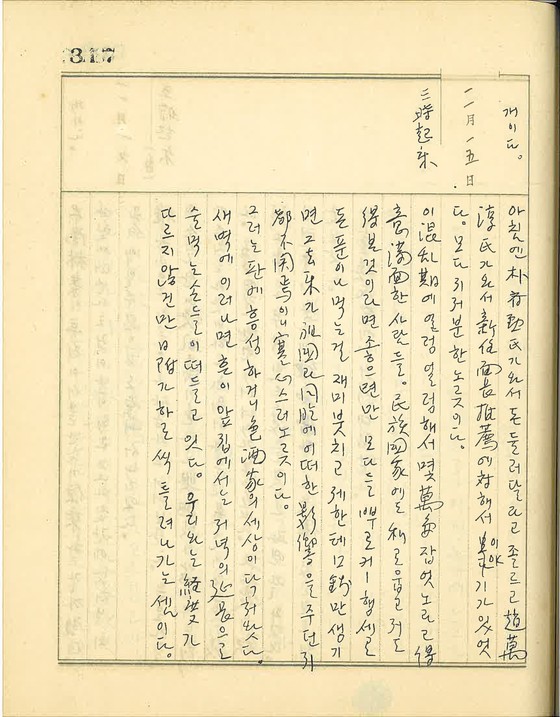 317
개이다。
一一月一五日
三時起床
아침엔 朴氏가 와서 돈 둘러달라고 졸르고 趙萬
淳氏가 와서 新任面長推薦에 대해서 이야기가 있엇
다。모다 귀치분한 노릇이다。
이 混乱期에 얼렁얼렁해서 몇萬金 잡엇노라고 得
意満面한 사람들。民族國家에도 利로웁고 저도
得본것이라면 조흐련만 모다들 뿌로커ー행세로
돈푼이나 먹는걸 재미붓치고 제한테 12錢만 생기
면 그 去来가 祖國과 同胞에 어떠한 影響을 주던지
都不関焉이니 寒心스러노릇이다。
그러는 판에 흥성하거니 色酒家의 세상이 닥처왓다。
새벽에 이러나면 흔이 앞집에서는 저녁의 延長으로
술먹는 손들이 떠들고 잇다。우리와는 経度가
다르지 않건만 日附가 하로씩 들려나가는 셈이다。